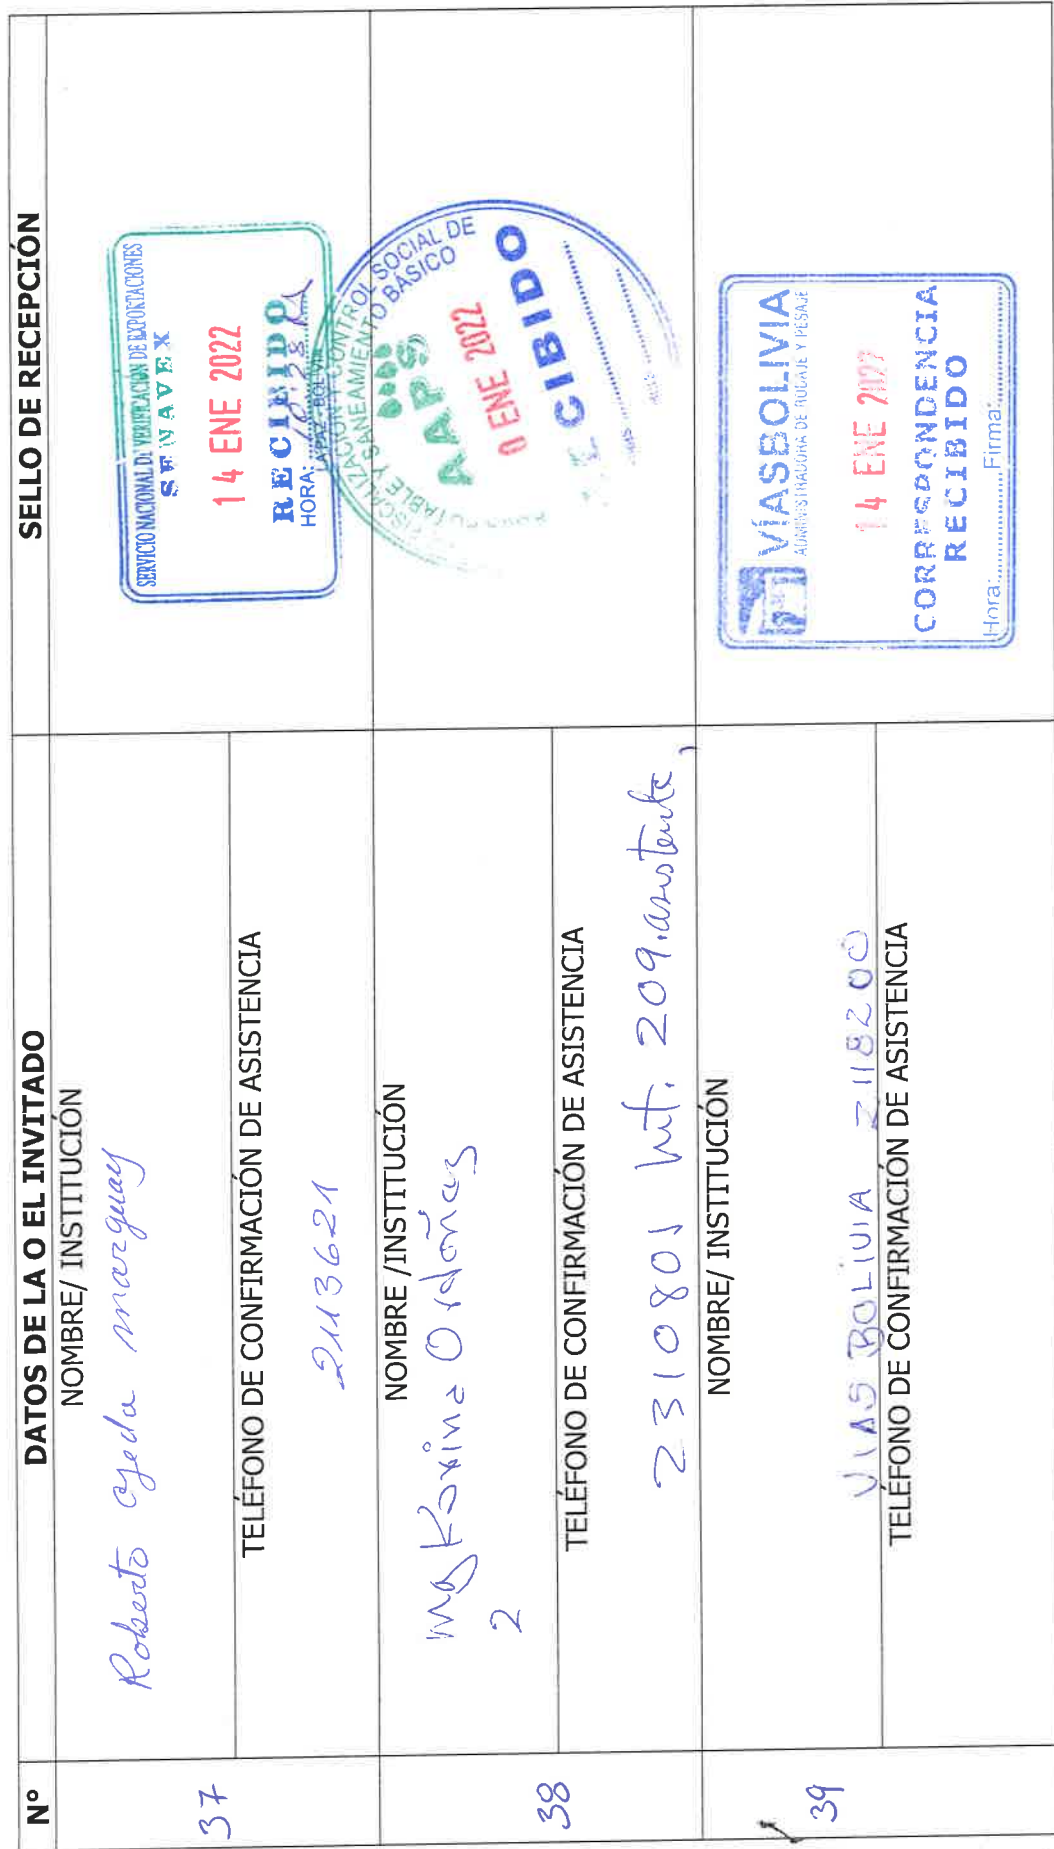 Nº
DATOS DE LA O EL INVITADO
SELLO DE RECEPCIÓN
37
NOMBRE/ INSTITUCIÓN
Roberto ojeda marguay
TELÉFONO DE CONFIRMACIÓN DE ASISTENCIA
2113621
SERVICIO NACIONAL DE VERIFICACIÓN DE EXPORTACIONES
SENAVEX
14 ENE 2022
RECIBIDO
HORA: 10:28
LA PAZ - BOLIVIA
38
NOMBRE /INSTITUCIÓN
Ordoñas
2
TELÉFONO DE CONFIRMACIÓN DE ASISTENCIA
2310801 Int. 209. asistente
FISCALIZACIÓN Y CONTROL SOCIAL DE
Y SANEAMIENTO BÁSICO
AAPS
0 ENE 2022
CIBIDO
39
NOMBRE/ INSTITUCIÓN
VIAS BOLIVIA 2118200
TELÉFONO DE CONFIRMACIÓN DE ASISTENCIA
VÍASBOLIVIA
ADMINISTRADORA DE RODAJE Y PESAJE
14 ENE 2022
CORRESPONDENCIA
RECIBIDO
Hora:............Firma:............